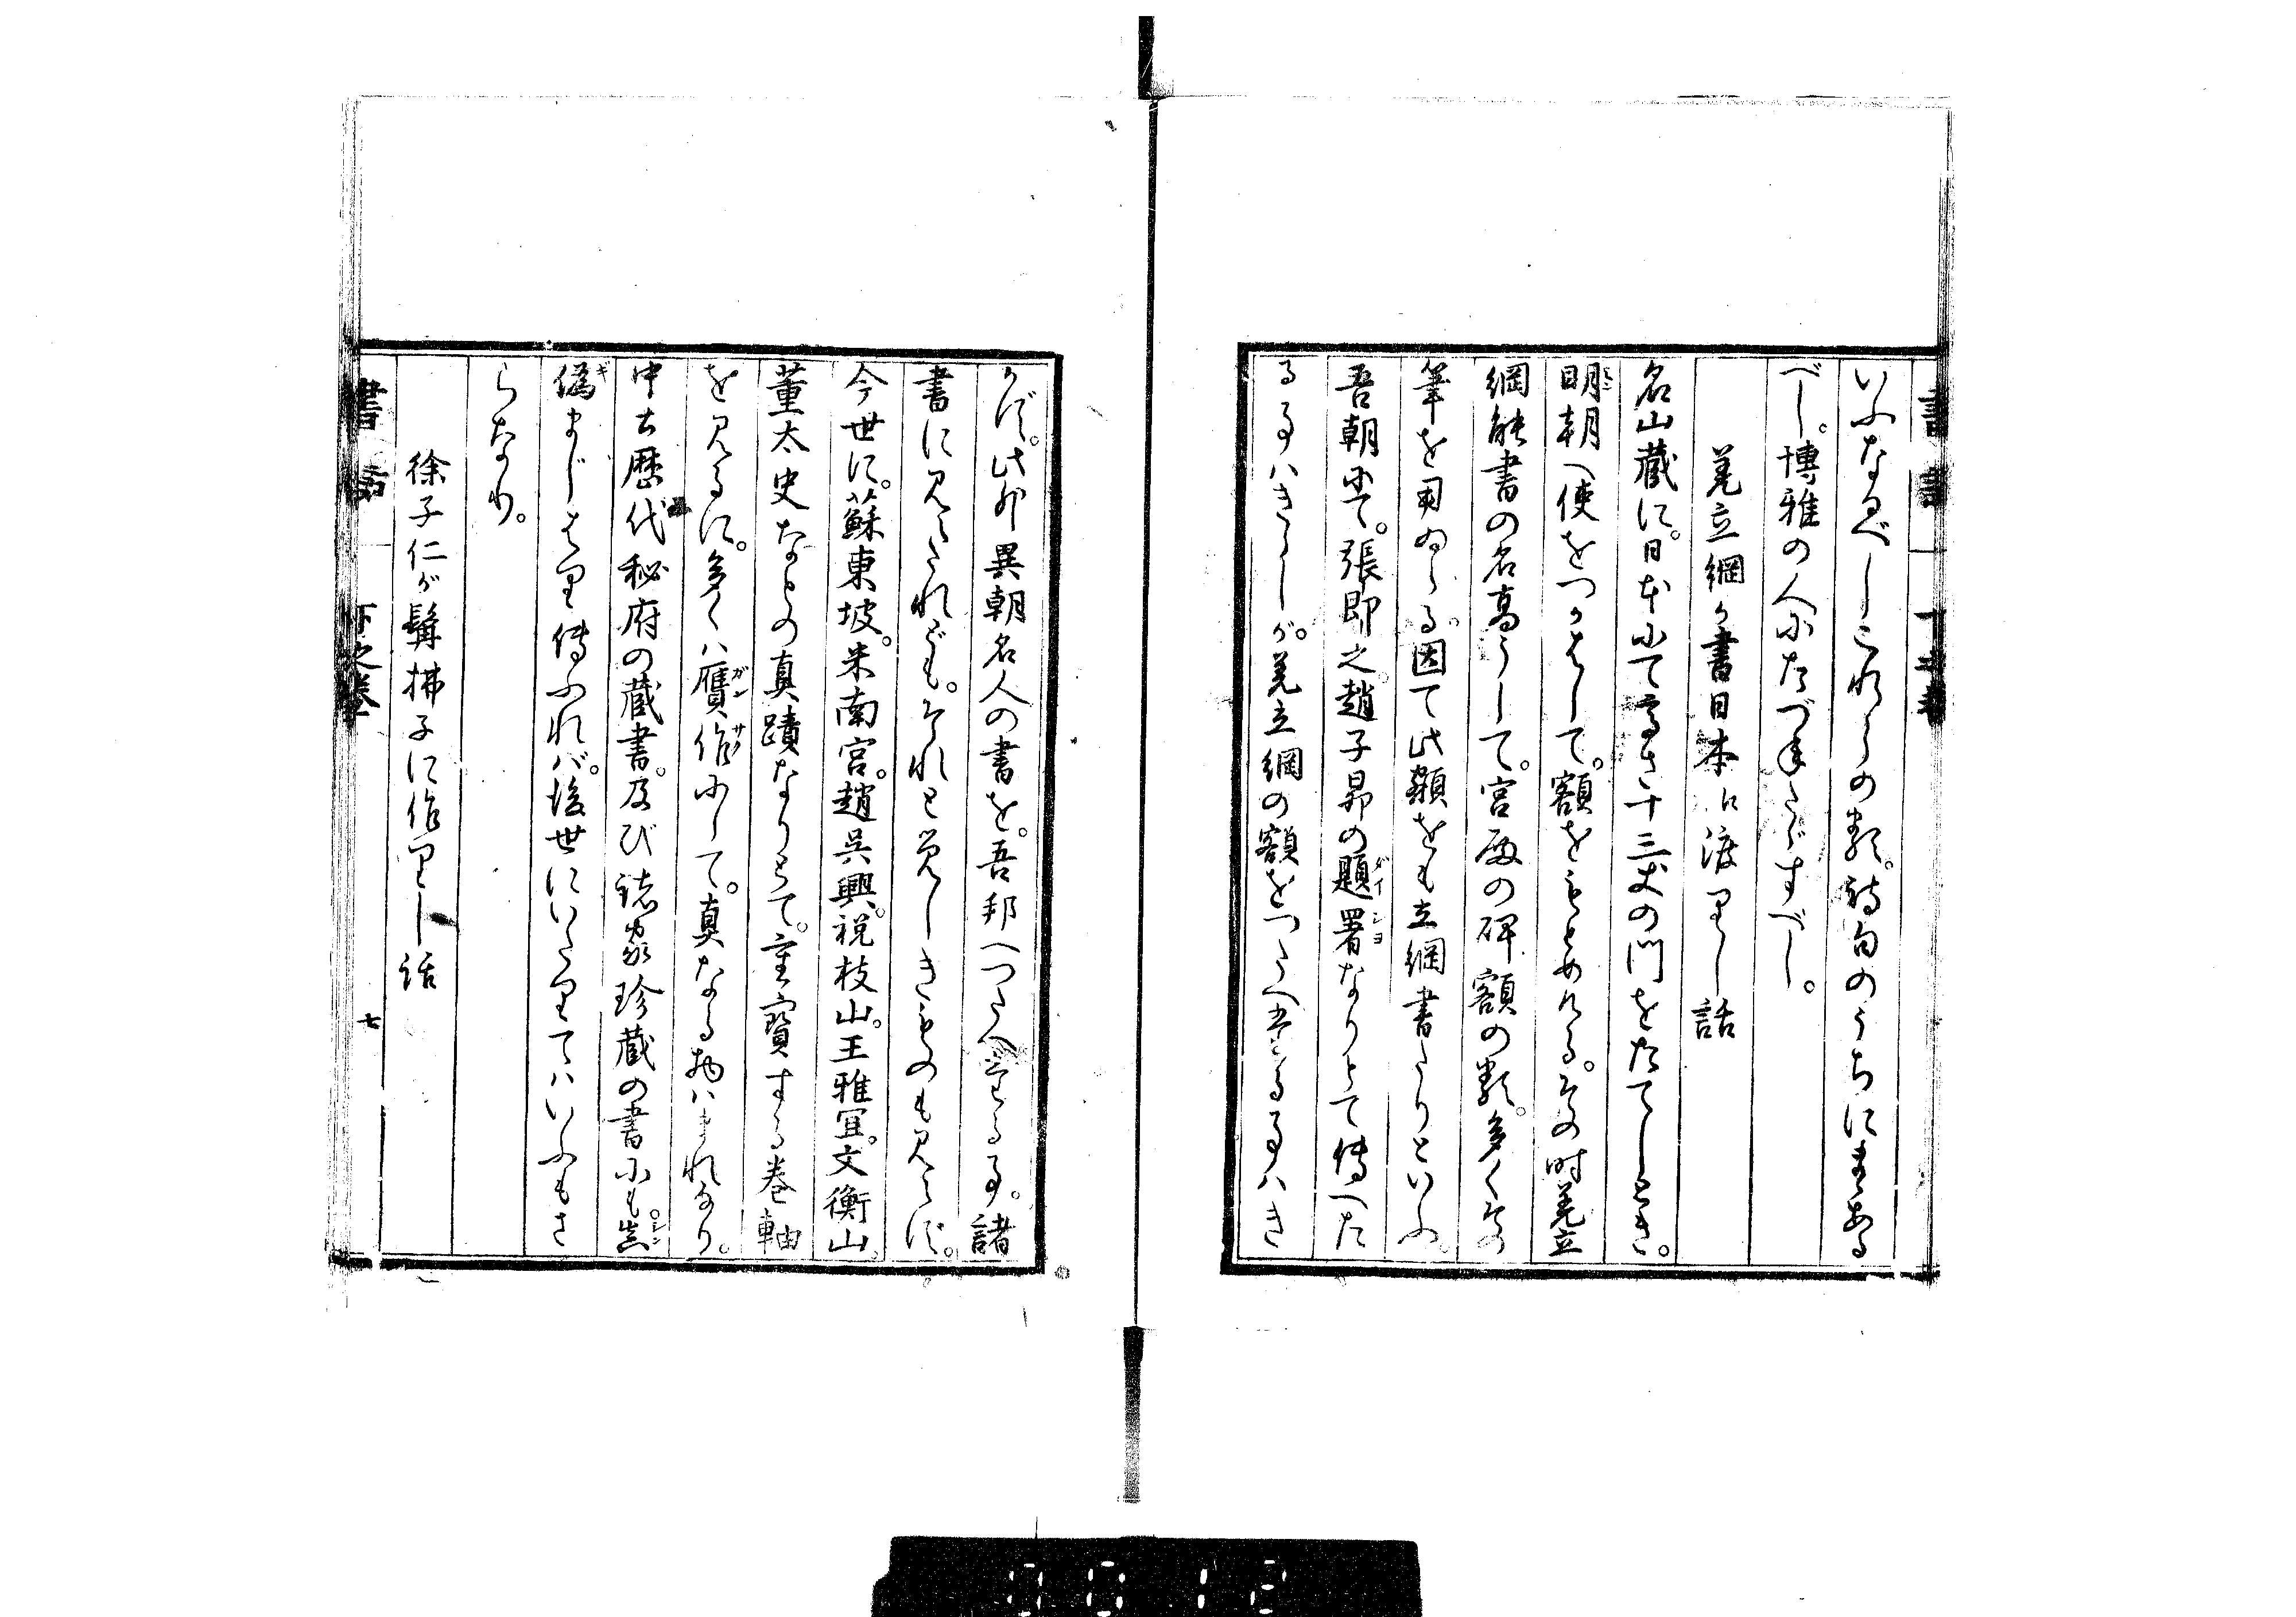 いふなるべしこれらの類。詩句のうちにまゝある
べし。博雅の人にたづねたゞすべし。
羌立綱が書日本に渡りし話
名山蔵に。日本にて高さ十三丈の門をたてしとき。
明朝へ使をつかはして。額をもとめける。その時羌立
綱能書の名高うして。宮殿の碑額の類。多くその
筆を用ゐらる。因て此額をも立綱書たりといふ。
吾朝にて。張即之。趙子昴の題署なりとて傳へた
る事はきゝしが。羌立綱の額をつたへきたる事はき
かず。此外異朝名人の書を。吾邦へつたへきたる事。諸
書に見へたれども。それと覚しきものも見へず。
今世に。蘇東坡。米南宮。趙呉興。祝枝山。王雅宜。文衡山。
董太史などの真蹟なりとて。重寳する巻軸
を見るに。多くは贋作にして。真なる物はまれなり。
中古歴代秘府の蔵書。及び諸家珍蔵の書にも真
偽まじはり傳ふれば。後世にいたりてはいふもさ
らなり。
徐子仁が髯拂子に作りし話
書話
下之巻
七